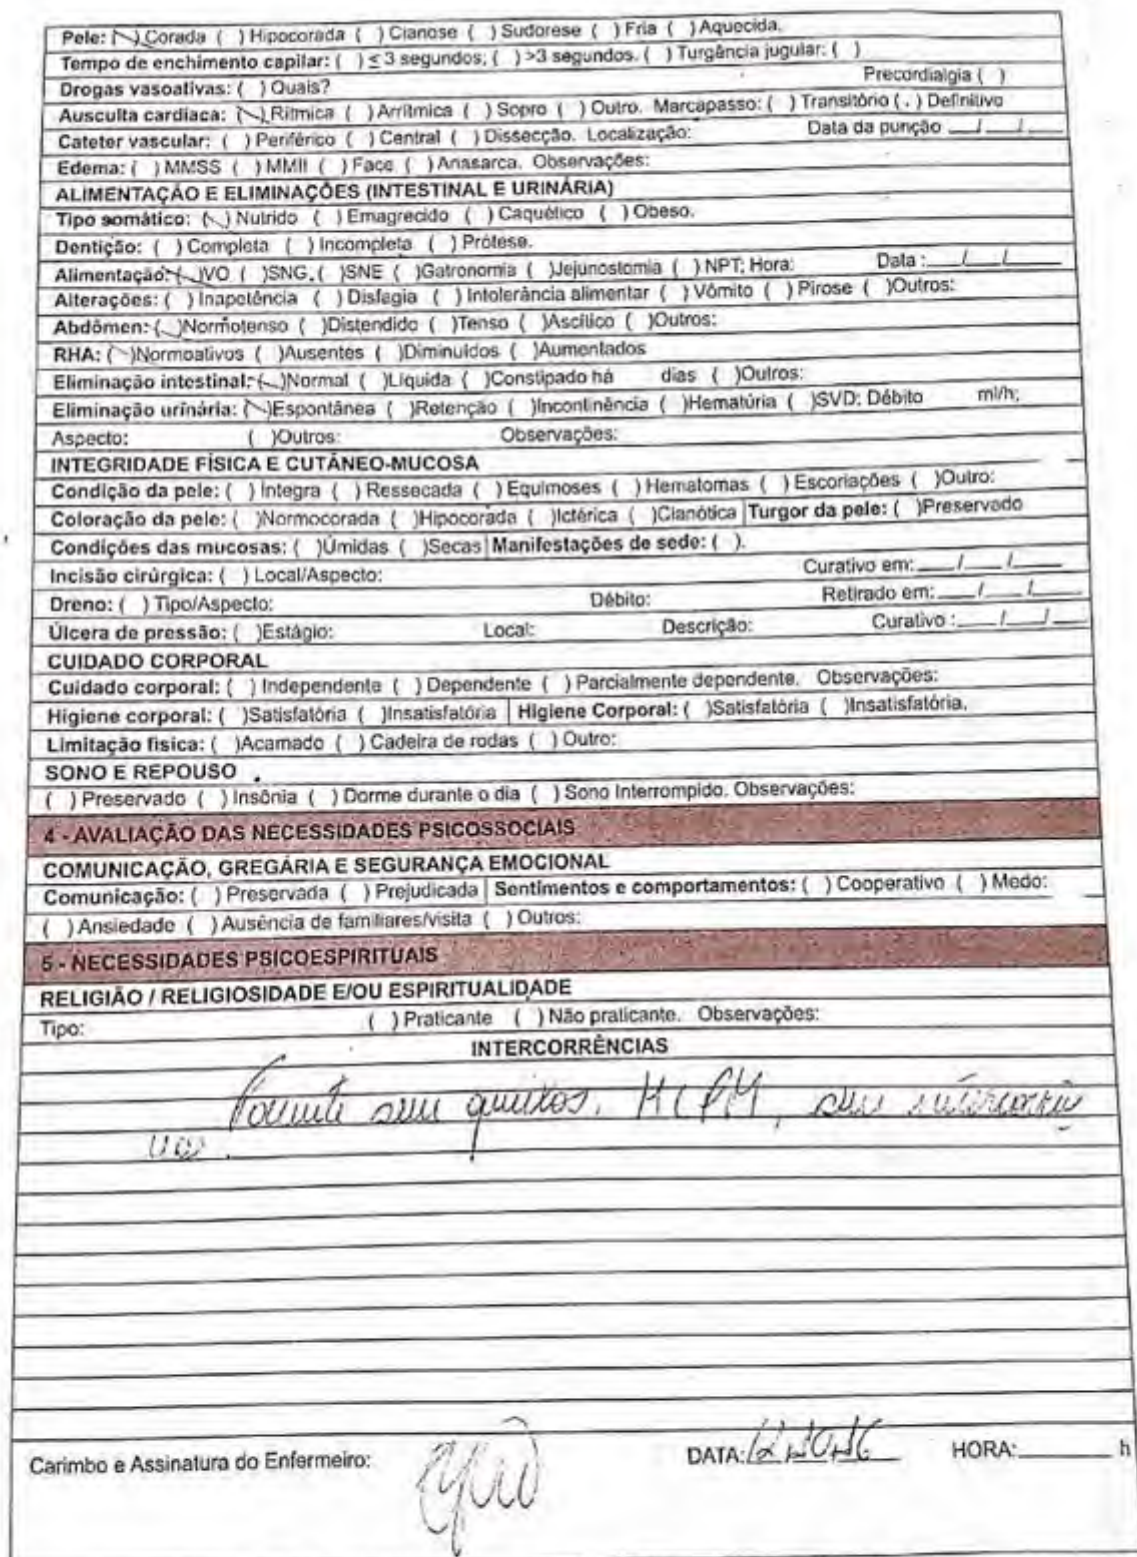 Pele: (\) Corada ( ) Hipocorada ( ) Cianose ( ) Sudorese ( ) Fria ( ) Aquecida.
Tempo de enchimento capilar: ( ) ≤ 3 segundos; ( ) >3 segundos. ( ) Turgência jugular: ( )
Drogas vasoativas: ( ) Quais? Precordialgia ( )
Ausculta cardíaca: (\) Rítmica ( ) Arrítmica ( ) Sopro ( ) Outro. Marcapasso: ( ) Transitório ( . ) Definitivo
Cateter vascular: ( ) Periférico ( ) Central ( ) Dissecção. Localização: Data da punção __/__/__
Edema: ( ) MMSS ( ) MMII ( ) Face ( ) Anasarca. Observações:
ALIMENTAÇÃO E ELIMINAÇÕES (INTESTINAL E URINÁRIA)
Tipo somático: (\) Nutrido ( ) Emagrecido ( ) Caquético ( ) Obeso.
Dentição: ( ) Completa ( ) Incompleta ( ) Prótese.
Alimentação: (\)VO ( )SNG, ( )SNE ( )Gatronomia ( )Jejunostomia ( ) NPT; Hora: Data : __/__/__
Alterações: ( ) Inapetência ( ) Disfagia ( ) Intolerância alimentar ( ) Vômito ( ) Pirose ( )Outros:
Abdômen: (\)Normotenso ( )Distendido ( )Tenso ( )Ascítico ( )Outros:
RHA: (\)Normoativos ( )Ausentes ( )Diminuídos ( )Aumentados
Eliminação intestinal: (\)Normal ( )Líquida ( )Constipado há dias ( )Outros:
Eliminação urinária: (\)Espontânea ( )Retenção ( )Incontinência ( )Hematúria ( )SVD: Débito ml/h;
Aspecto: ( )Outros: Observações:
INTEGRIDADE FÍSICA E CUTÂNEO-MUCOSA
Condição da pele: ( ) Íntegra ( ) Ressecada ( ) Equimoses ( ) Hematomas ( ) Escoriações ( )Outro:
Coloração da pele: ( )Normocorada ( )Hipocorada ( )Ictérica ( )Cianótica Turgor da pele: ( )Preservado
Condições das mucosas: ( )Úmidas ( )Secas Manifestações de sede: ( ).
Incisão cirúrgica: ( ) Local/Aspecto: Curativo em: __/__/__
Dreno: ( ) Tipo/Aspecto: Débito: Retirado em: __/__/__
Úlcera de pressão: ( )Estágio: Local: Descrição: Curativo : __/__/__
CUIDADO CORPORAL
Cuidado corporal: ( ) Independente ( ) Dependente ( ) Parcialmente dependente. Observações:
Higiene corporal: ( )Satisfatória ( )Insatisfatória Higiene Corporal: ( )Satisfatória ( )Insatisfatória.
Limitação física: ( )Acamado ( ) Cadeira de rodas ( ) Outro:
SONO E REPOUSO
( ) Preservado ( ) Insônia ( ) Dorme durante o dia ( ) Sono Interrompido. Observações:
4 - AVALIAÇÃO DAS NECESSIDADES PSICOSSOCIAIS
COMUNICAÇÃO, GREGÁRIA E SEGURANÇA EMOCIONAL
Comunicação: ( ) Preservada ( ) Prejudicada Sentimentos e comportamentos: ( ) Cooperativo ( ) Medo:
( ) Ansiedade ( ) Ausência de familiares/visita ( ) Outros:
5 - NECESSIDADES PSICOESPIRITUAIS
RELIGIÃO / RELIGIOSIDADE E/OU ESPIRITUALIDADE
Tipo: ( ) Praticante ( ) Não praticante. Observações:
INTERCORRÊNCIAS
Paciente sem queixas, MCPM, sem intercorrên
cias.
Carimbo e Assinatura do Enfermeiro: DATA: HORA: ______ h